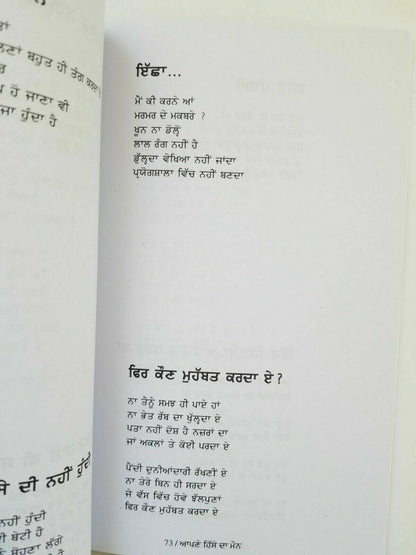 ਲਣਾਂ ਬਹੁਤ ਹੀ ਤੰਗ
ਹੋ ਜਾਣਾ ਵੀ
ਜਾ ਹੁੰਦਾ ਹੈ
ਦੀ ਨਹੀਂ ਹੁੰਦੀ
ਨਹੀਂ ਹੁੰਦੀ
ਬੇਟੀ ਹੈ
ਸੋਹਣਾ ਲੱਗੇ
ਇੱਛਾ...
ਮੈਂ ਕੀ ਕਰਨੇ ਆਂ
ਮਰਮਰ ਦੇ ਮਕਬਰੇ ?
ਖੂਨ ਨਾ ਡੋਲ੍ਹੋ
ਲਾਲ ਰੰਗ ਨਹੀਂ ਹੈ
ਡੁੱਲ੍ਹਦਾ ਵੇਖਿਆ ਨਹੀਂ ਜਾਂਦਾ
ਪ੍ਰਯੋਗਸ਼ਾਲਾ ਵਿੱਚ ਨਹੀਂ ਬਣਦਾ
ਫਿਰ ਕੌਣ ਮੁਹੱਬਤ ਕਰਦਾ ਏ?
ਨਾ ਤੈਨੂੰ ਸਮਝ ਹੀ ਪਾਏ ਹਾਂ
ਨਾ ਭੇਤ ਰੱਬ ਦਾ ਖੁੱਲ੍ਹਦਾ ਏ
ਪਤਾ ਨਹੀਂ ਦੋਸ਼ ਹੈ ਨਜ਼ਰਾਂ ਦਾ
ਜਾਂ ਅਕਲਾਂ ਤੇ ਕੋਈ ਪਰਦਾ ਏ
ਪੈਂਦੀ ਦੁਨੀਆਂਦਾਰੀ ਰੱਖਣੀਂ ਏ
ਨਾ ਤੇਰੇ ਬਿਨ ਹੀ ਸਰਦਾ ਏ
ਜੇ ਵੱਸ ਵਿੱਚ ਹੋਵੇ ਝੱਲਪੁਣਾਂ
ਫਿਰ ਕੌਣ ਮੁਹੱਬਤ ਕਰਦਾ ਏ
73 / ਆਪਣੇ ਹਿੱਸੇ ਦਾ ਮੌਨ